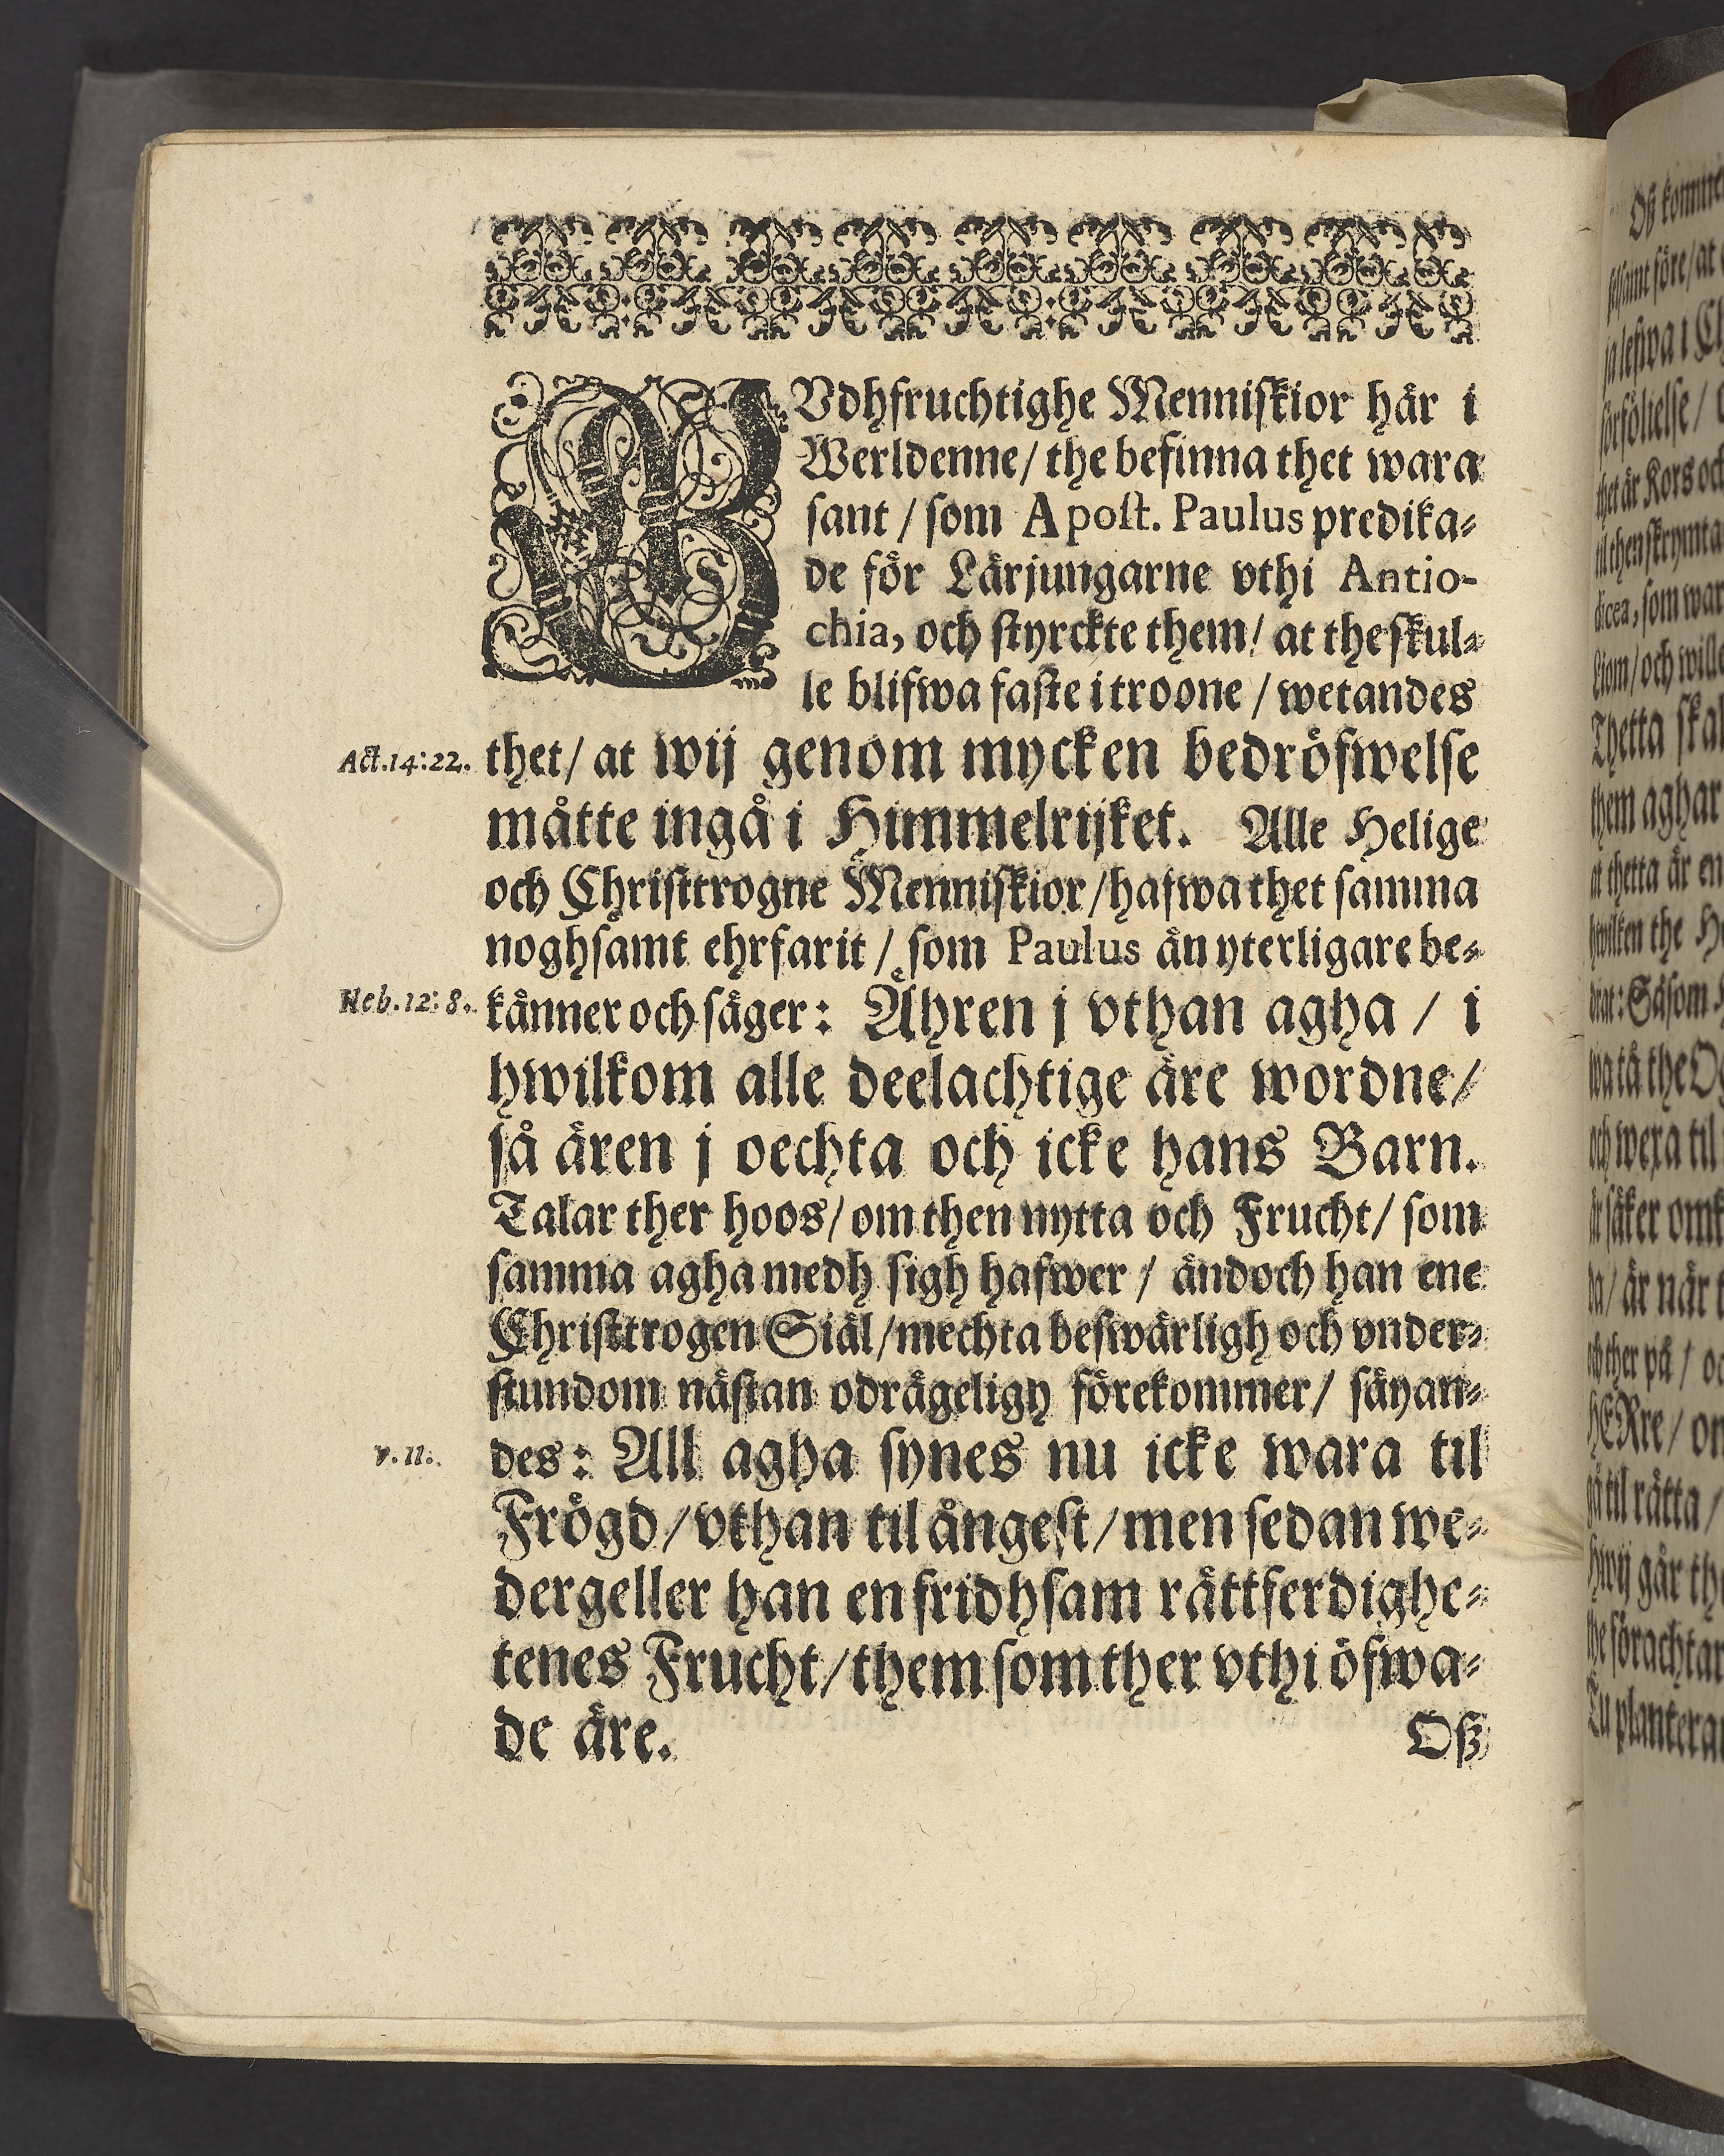 GVdhfruchtighe Menniskior här i
Werldenne / the befinna thet wara
sant / som Apost. Paulus predika-
de för Lärjungarne vthi Antio-
chia, och styrckte them / at the skul-
le blifwa faste i troone / wetandes
Act. 14: 22. thet / at wij genom mycken bedröfwelse
måtte ingå i Himmelrijket. Alle Helige
och Christtrogne Menniskior / hafwa thet samma
noghsamt ehrfarit / som Paulus än yterligare be-
Heb. 12: 8. känner och säger: Ähren j vthan agha / i
hwilkom alle deelachtige äre wordne /
så ären j oechta och icke hans Barn.
Talar ther hoos / om then nytta och Frucht / som
samma agha medh sigh hafwer / ändoch han ene
Christtrogen Siäl / mechta beswärligh och vnder-
stundom nästan odrägeligh förekommer / säyan-
v. 11. des: All agha synes nu icke wara til
Frögd / vthan til ångest / men sedan we-
dergeller han en fridhsam rättferdighe-
tenes Frucht / them som ther vthi öfwa-
de äre.
Oß
Oß komme
ja lefwa i
förföliesse /
thet är Kors och
til then skrymta
dicea, som war
Thetta skal
them aghar
at thetta är en
hwilken the
wa tå the
och wexa til
är säker
da / är när
och ther på /
HERre /
gå til rätta /
Hwij går
the förachtar
Tu planterar